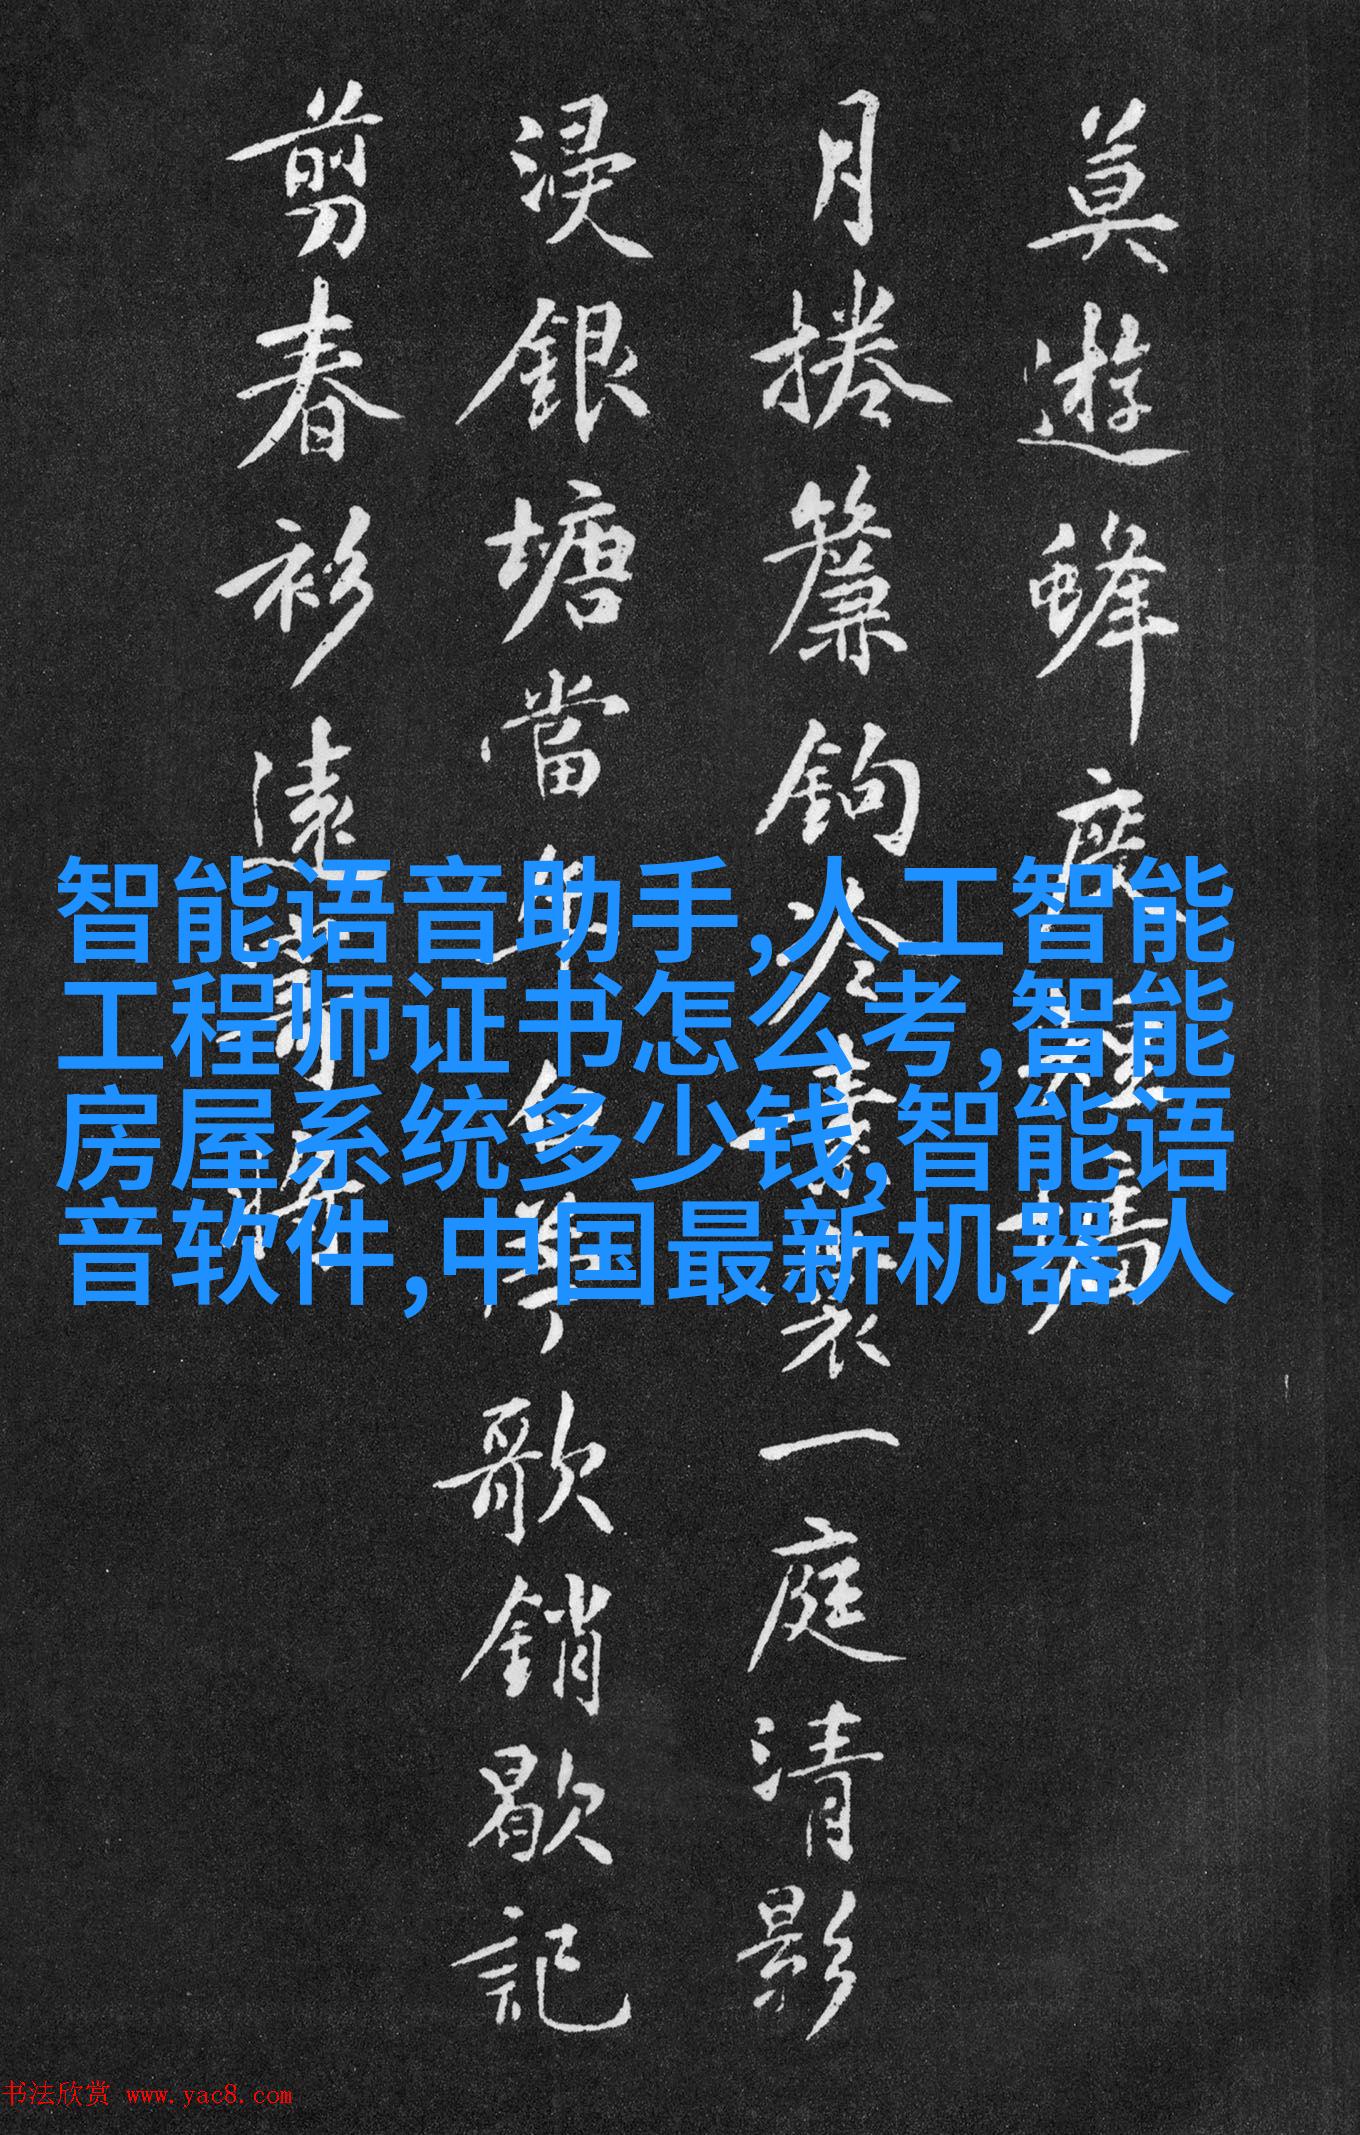 莫遊蜂
月捲簾鉤冷
一庭清影
浸銀塘當年
歌銷歇記
剪春衫遠寄將
智能语音助手,人工智能
工程师证书怎么考,智能
房屋系统多少钱,智能语
音软件,中国最新机器人
书法欣赏 www.yac8.com